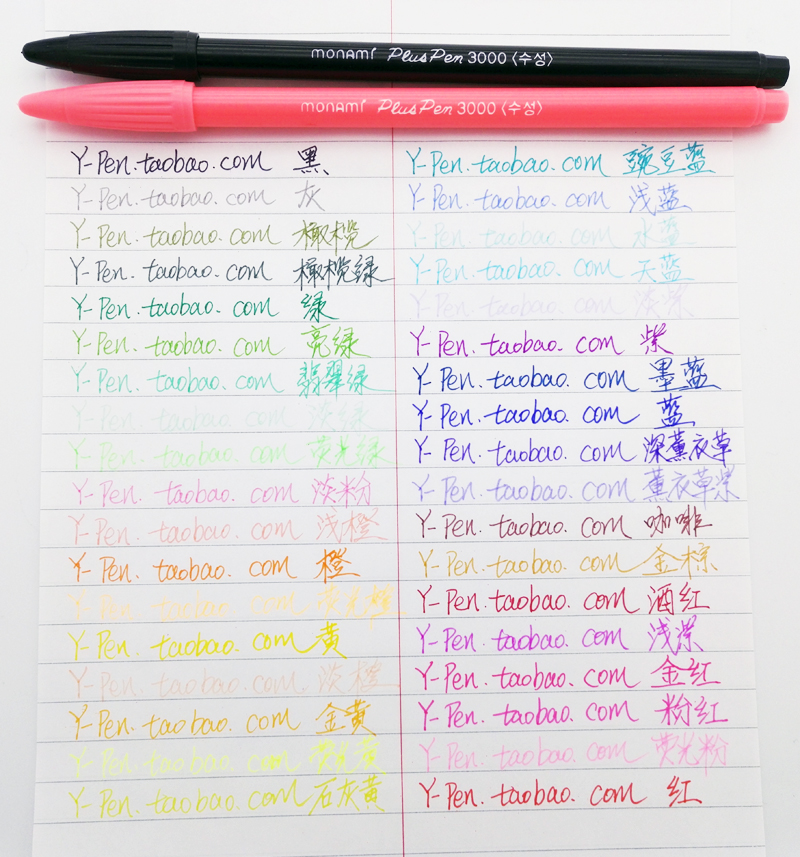 monami Plus Pen 3000 〈수성〉
monami Plus Pen 3000 〈수성〉
Y-Pen.taobao.com 黑
Y-Pen.taobao.com 灰
Y-Pen.taobao.com 橄榄
Y-Pen.taobao.com 橄榄绿
Y-Pen.taobao.com 绿
Y-Pen.taobao.com 亮绿
Y-Pen.taobao.com 翡翠绿
Y-Pen.taobao.com 淡绿
Y-Pen.taobao.com 荧光绿
Y-Pen.taobao.com 淡粉
Y-Pen.taobao.com 浅橙
Y-Pen.taobao.com 橙
Y-Pen.taobao.com 荧光橙
Y-Pen.taobao.com 黄
Y-Pen.taobao.com 淡橙
Y-Pen.taobao.com 金黄
Y-Pen.taobao.com 荧光黄
Y-Pen.taobao.com 石灰黄
Y-Pen.taobao.com 豌豆蓝
Y-Pen.taobao.com 浅蓝
Y-Pen.taobao.com 水蓝
Y-Pen.taobao.com 天蓝
Y-Pen.taobao.com 淡紫
Y-Pen.taobao.com 紫
Y-Pen.taobao.com 墨蓝
Y-Pen.taobao.com 蓝
Y-Pen.taobao.com 深薰衣草
Y-Pen.taobao.com 薰衣草紫
Y-Pen.taobao.com 咖啡
Y-Pen.taobao.com 金棕
Y-Pen.taobao.com 酒红
Y-Pen.taobao.com 浅紫
Y-Pen.taobao.com 金红
Y-Pen.taobao.com 粉红
Y-Pen.taobao.com 荧光粉
Y-Pen.taobao.com 红